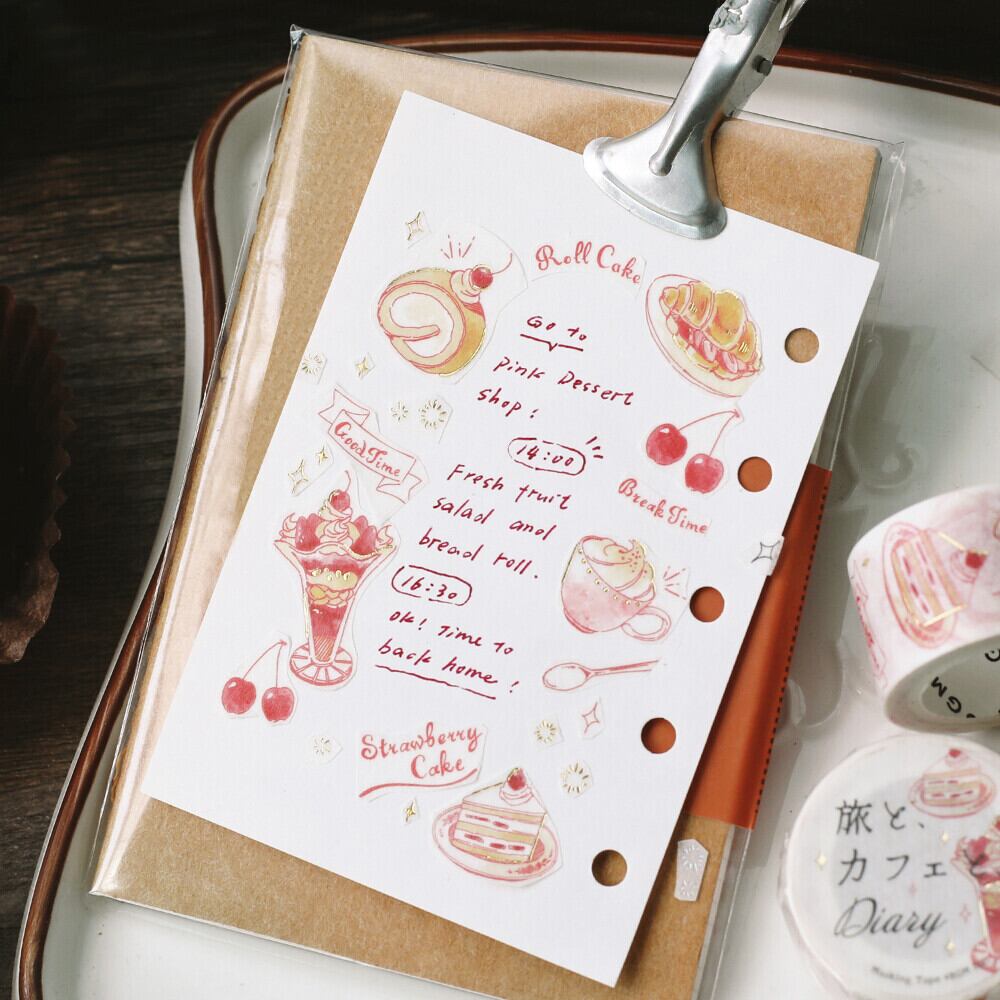 Roll Cake
Go to
Pink Dessert
Shop!
14:00
Fresh fruit
salad and
bread roll.
16:30
OK! Time to
back home!
Good Time
Break Time
Strawberry
Cake
BGM
旅と、
カフェと
Diary
Masking Tape